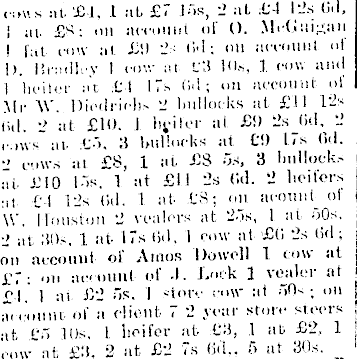 cows at £4, 1 at £7 15s, 2 at £4 12s 6d,
1 at £8; on account of O. McGuigan
1 fat cow at £9 2s 6d; on account of
D. Bradley 1 cow at £3 10s, 1 cow and
1 heifer at £4 17s 6d; on account of
Mr W. Diedrichs 2 bullocks at £11 12s
6d, 2 at £10, 1 heifer at £9 2s 6d, 2
cows at £5, 3 bullocks at £9 17s 6d,
2 cows at £8, 1 at £8 5s, 3 bullocks
at £10 15s, 1 at £11 2s 6d, 2 heifers
at £4 12s 6d, 1 at £8; on acount of
W. Houston 2 vealers at 25s, 1 at 50s,
2 at 30s, 1 at 17s 6d, 1 cow at £6 2s 6d;
on account of Amos Dowell 1 cow at
£7; on account of J. Lock 1 vealer at
£4, 1 at £2 5s, 1 store cow at 50s; on
account of a client 7 2 year store steers
at £5 10s, 1 heifer at £3, 1 at £2, 1
cow at £3, 2 at £2 7s 6d., 5 at 30s.